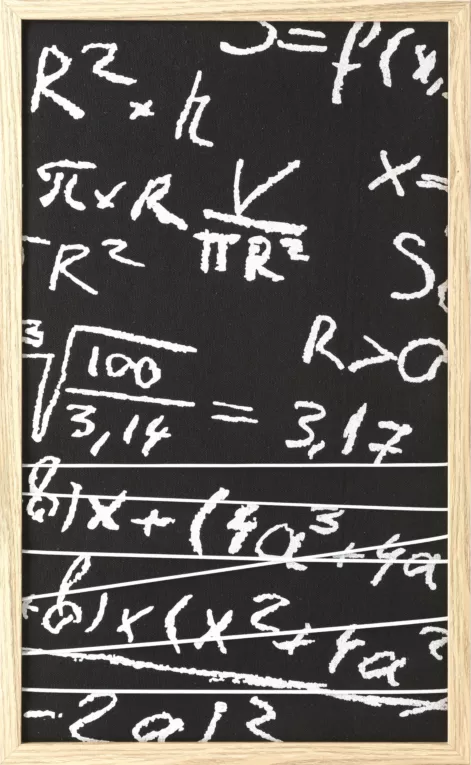 J = f(x,
R² × h
π × R V/πR² x =
- R² S
R > 0
³√(100/3,14) = 3,17
b) x + (4a³ + 4a
+ b) x (x² + 4a²
- 2 a) 2